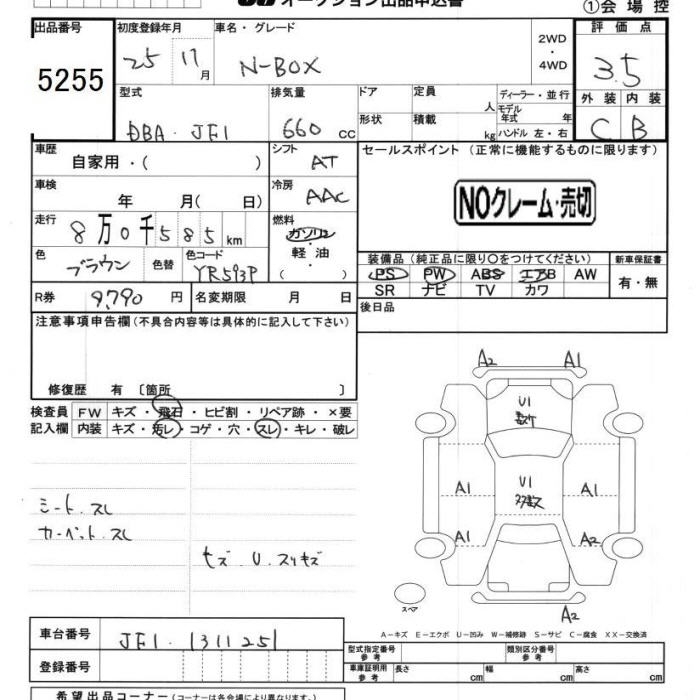 オークション出品申込書 ①会場控
出品番号 初度登録年月 車名・グレード 2WD・4WD 評価点
5255 25 11月 N-BOX 3.5
型式 排気量 ドア 定員 人 ディーラー・並行 外装 内装
DBA・JF1 660cc 形状 積載 kg モデル年式 年 ハンドル 左・右 C B
車歴 自家用・( ) シフト AT セールスポイント (正常に機能するものに限ります)
車検 年 月( 日) 冷房 AAC NOクレーム・売切
走行 8万0千585km 燃料 ガソリン・軽油・( )
色 ブラウン 色替 色コード YR593P
装備品 (純正品に限り○をつけてください) 新車保証書
PS PW ABS エアB AW 有・無
SR ナビ TV カワ
R券 9,790円 名変期限 月 日 後日品
注意事項申告欄 (不具合内容等は具体的に記入して下さい)
修復歴 有 〔箇所 〕
検査員 FW キズ・飛石・ヒビ割・リペア跡・×要
記入欄 内装 キズ・汚レ・コゲ・穴・スレ・キレ・破レ
シート スレ
カーペット スレ
キズ U スリキズ
A2 A1
U1
A1 U1 A1
多数
A1 A2
スペア
A2
A-キズ E-エクボ U-凹み W-補修跡 S-サビ C-腐食 XX-交換済
車台番号 JF1・1311251
登録番号
型式指定番号 参考 類別区分番号 参考
車庫証明用 参考 長さ cm 幅 cm 高さ cm
希望出品コーナー (コーナーは各会場により異なります。)